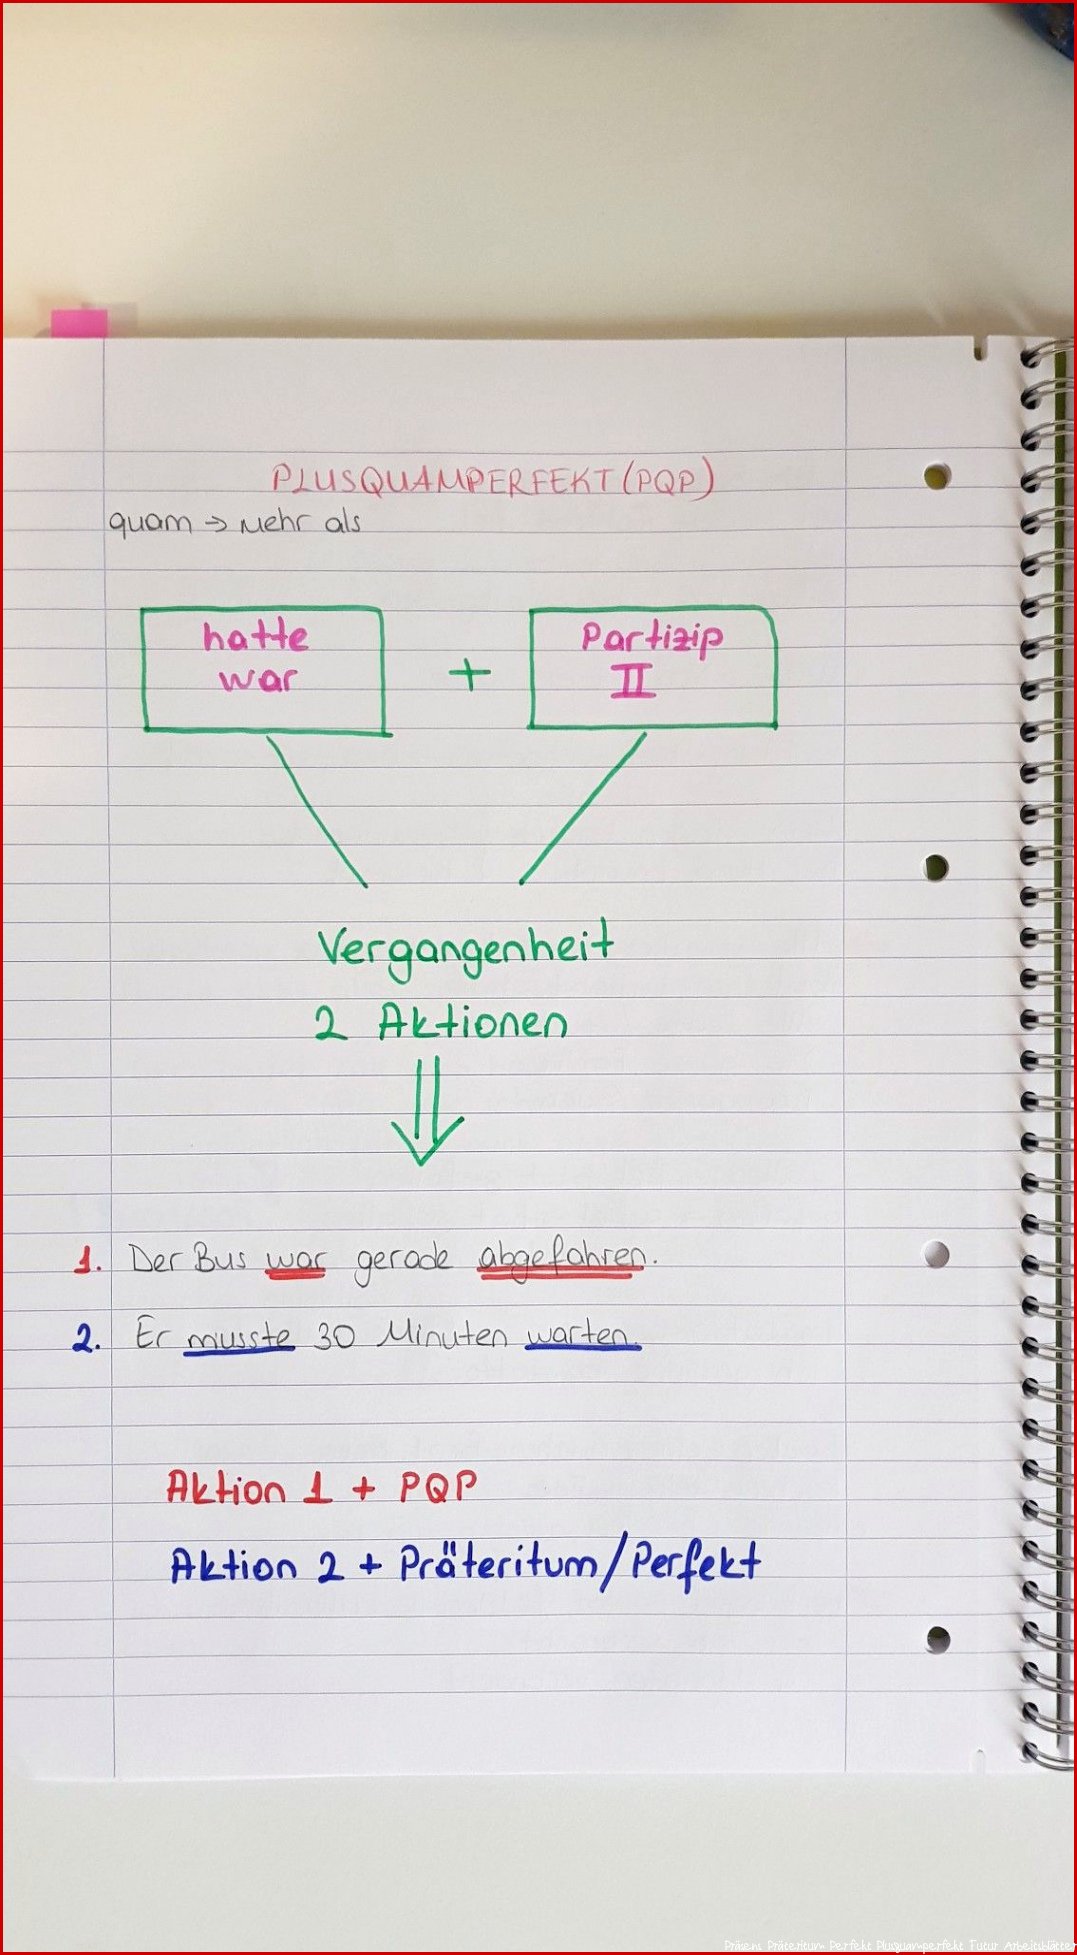 PLUSQUAMPERFEKT (PQP)
quam → Mehr als
hatte
war
+
Partizip
II
Vergangenheit
2 Aktionen
1. Der Bus war gerade abgefahren.
2. Er musste 30 Minuten warten.
Aktion 1 + PQP
Aktion 2 + Präteritum/Perfekt
Präsens Präteritum Perfekt Plusquamperfekt Futur Arbeitsblätter